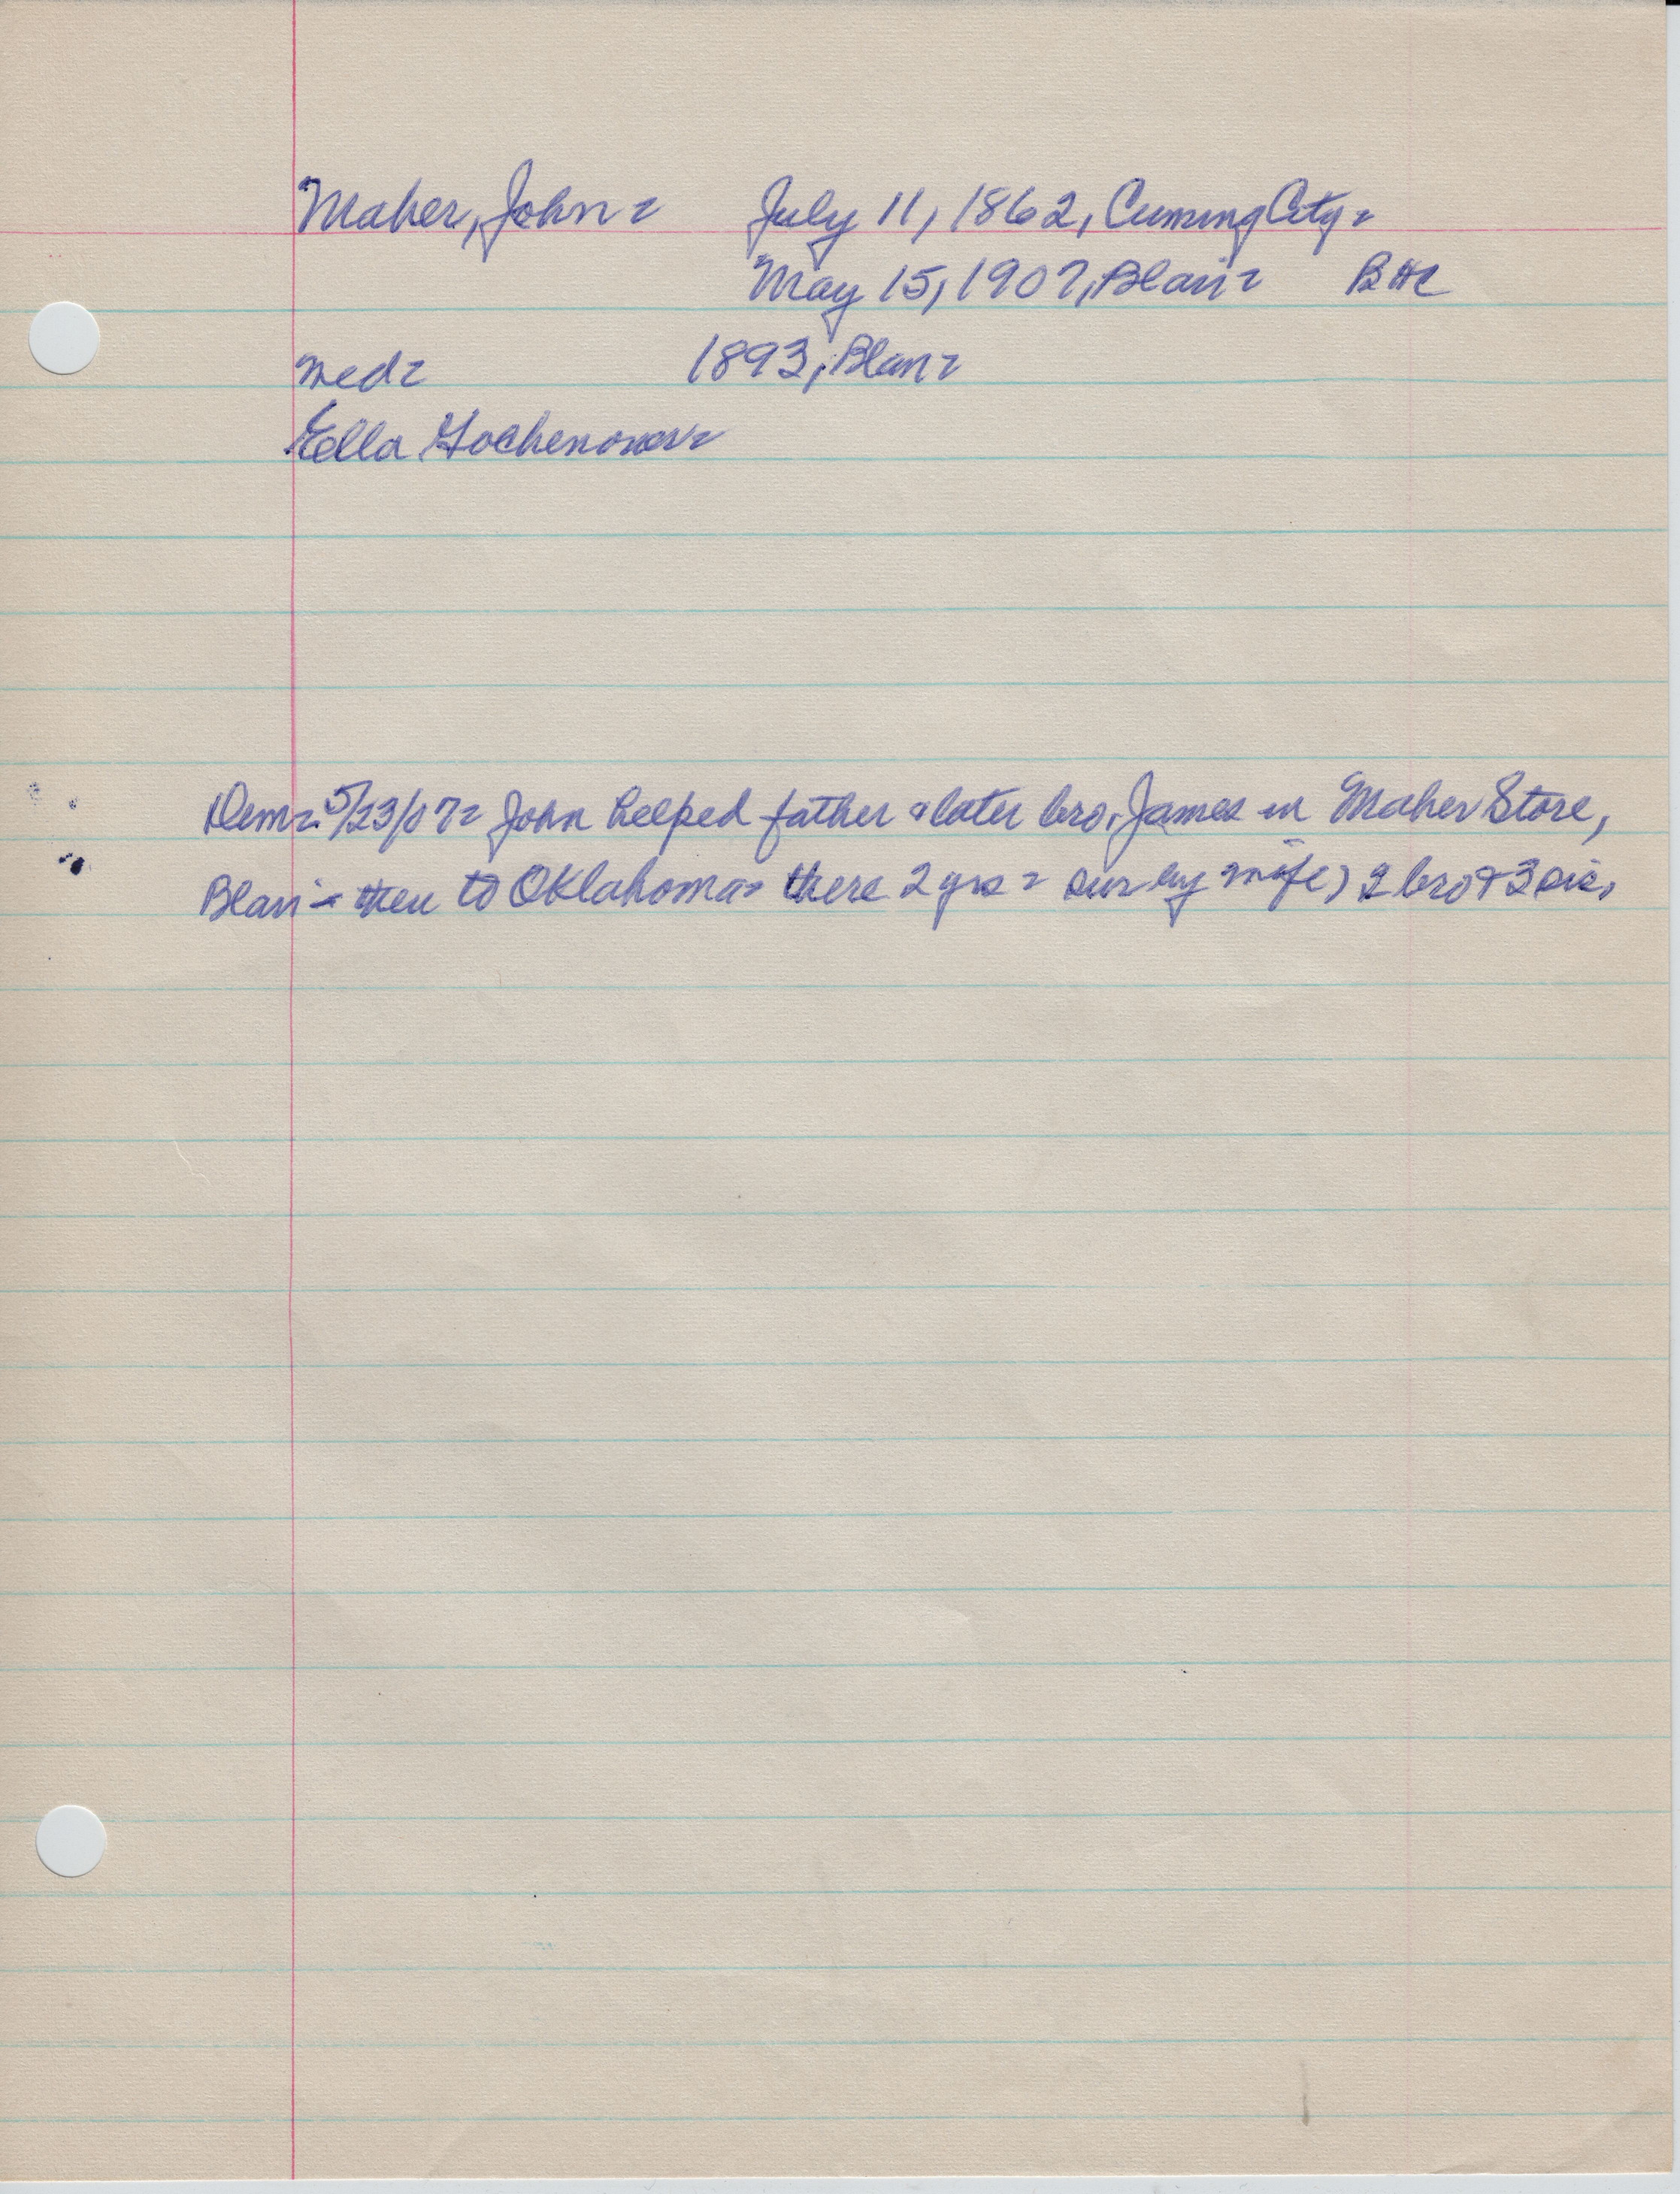 Maher, John - July 11, 1862, Cuming City -
May 15, 1907, Blair - BHC
med - 1893, Blair -
Ella Gochenour -
Dem - 5/23/07 - John helped father & later bro. James in Maher Store,
Blair - then to Oklahoma - there 2 yrs - sur by wife, 2 bro & 3 sis,